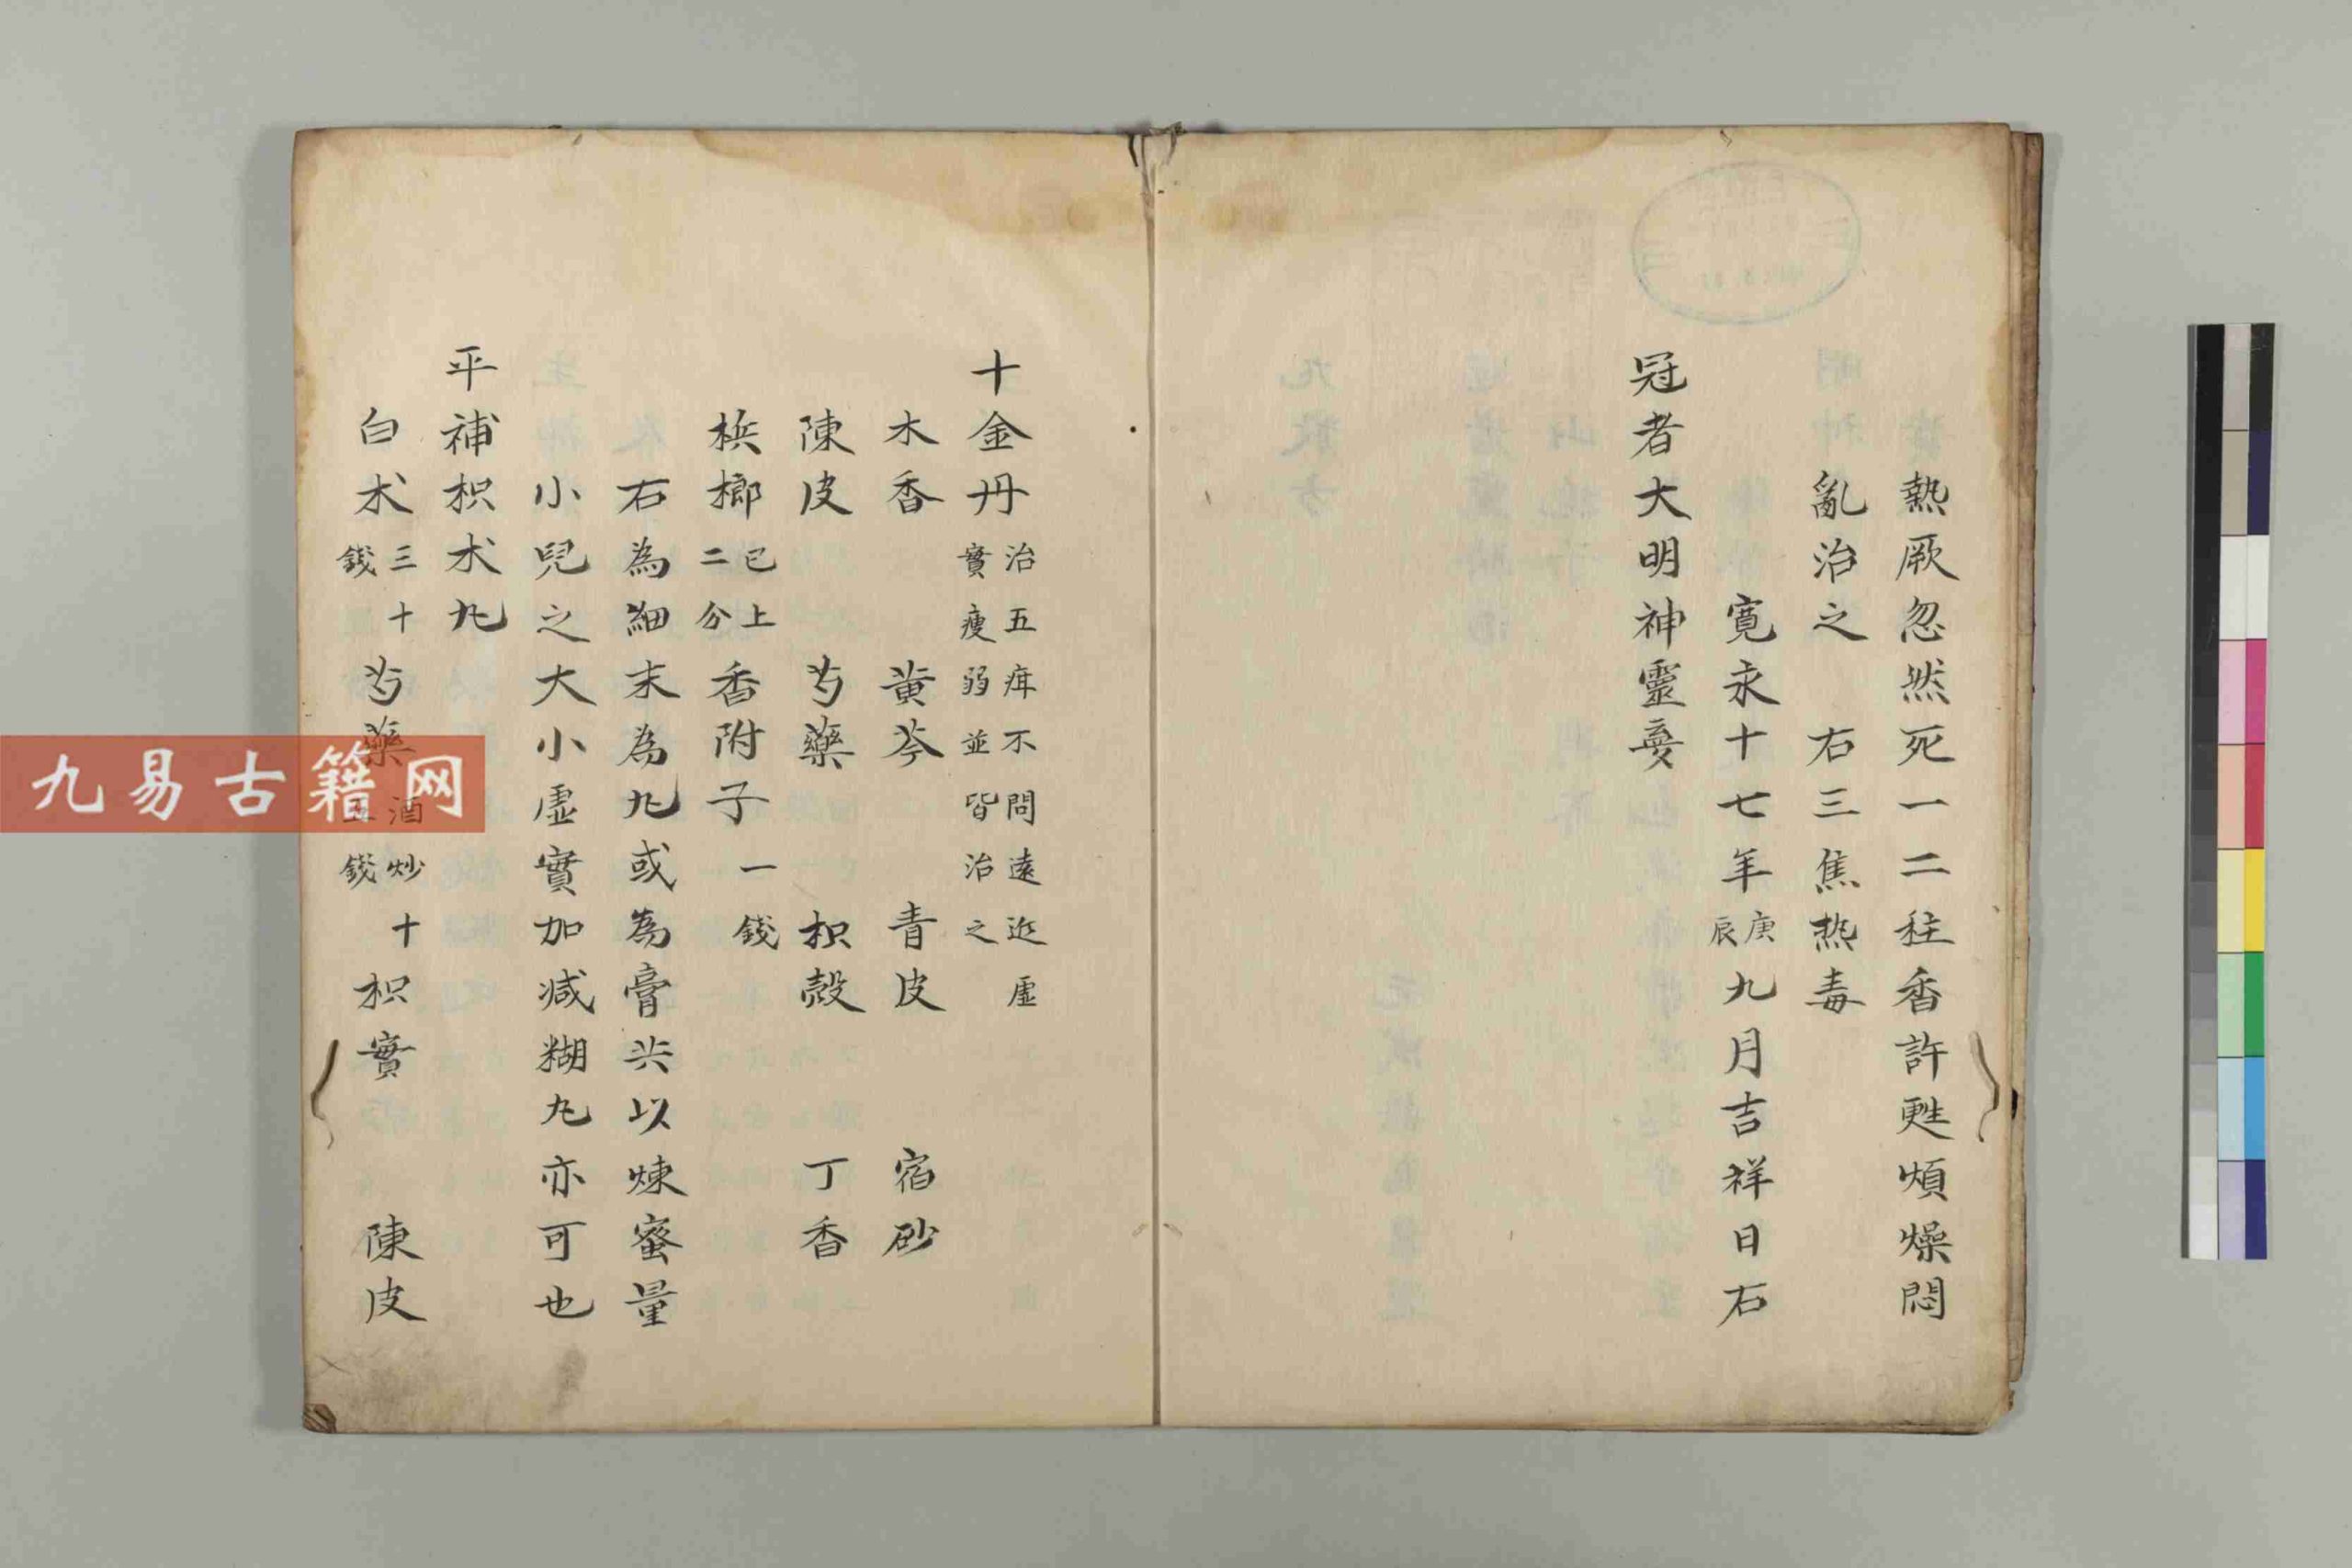 熱厥忽然死一二炷香許甦煩燥悶
亂治之　右三焦热毒
寛永十七年庚辰九月吉祥日石
冠者大明神靈
十金丹治五疳不問遠近虛實瘦弱並皆治之
木香　黄芩　青皮　宿砂
陳皮　芍藥　枳殼　丁香
檳榔已上二分香附子一錢
右為細末為丸或為膏共以煉蜜量
小兒之大小虛實加减糊丸亦可也
平補枳朮丸
白朮三十錢芍藥酒炒十五錢枳實　陳皮
九易古籍网